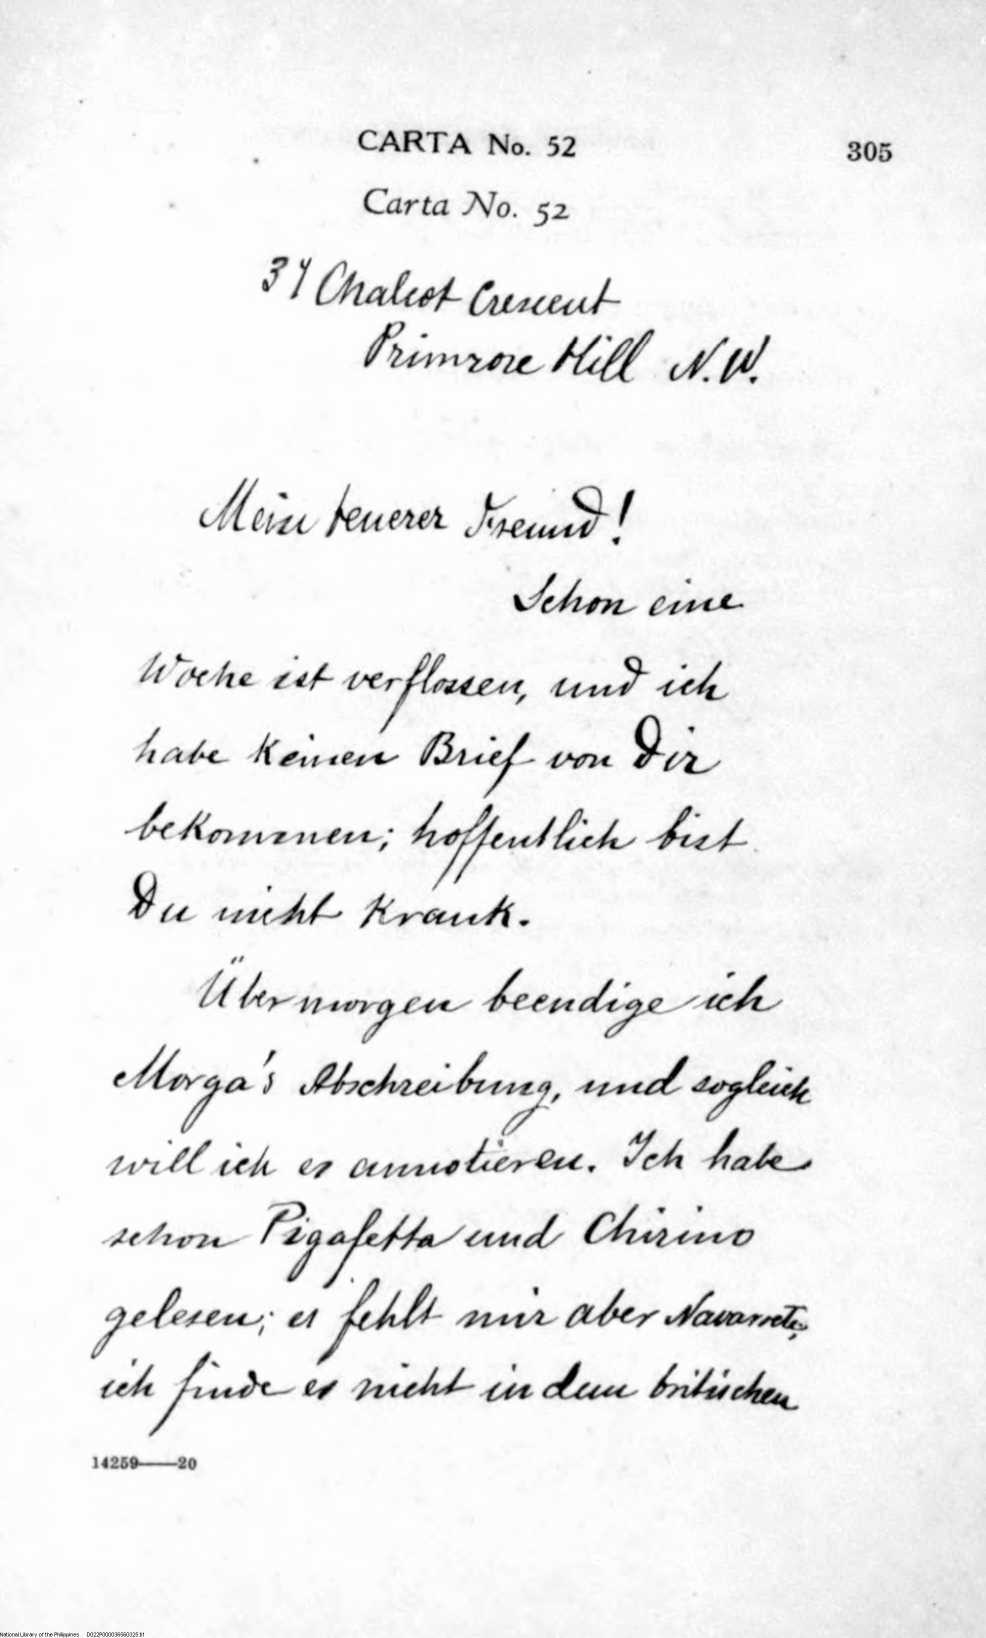 CARTA No. 52
305
Carta No. 52
37 Chalcot Crescent
Primrose Hill N.W.
Mein teuerer Freund!
Schon eine
Woche ist verflossen, und ich
habe keinen Brief von Dir
bekommen; hoffentlich bist
Du nicht krank.
Übermorgen beendige ich
Morga's Abschreibung, und sogleich
will ich es annotieren. Ich habe
schon Pigafetta und Chirino
gelesen; es fehlt mir aber Navarrete,
ich finde es nicht in dem britischen
14259——20
National Library of the Philippines